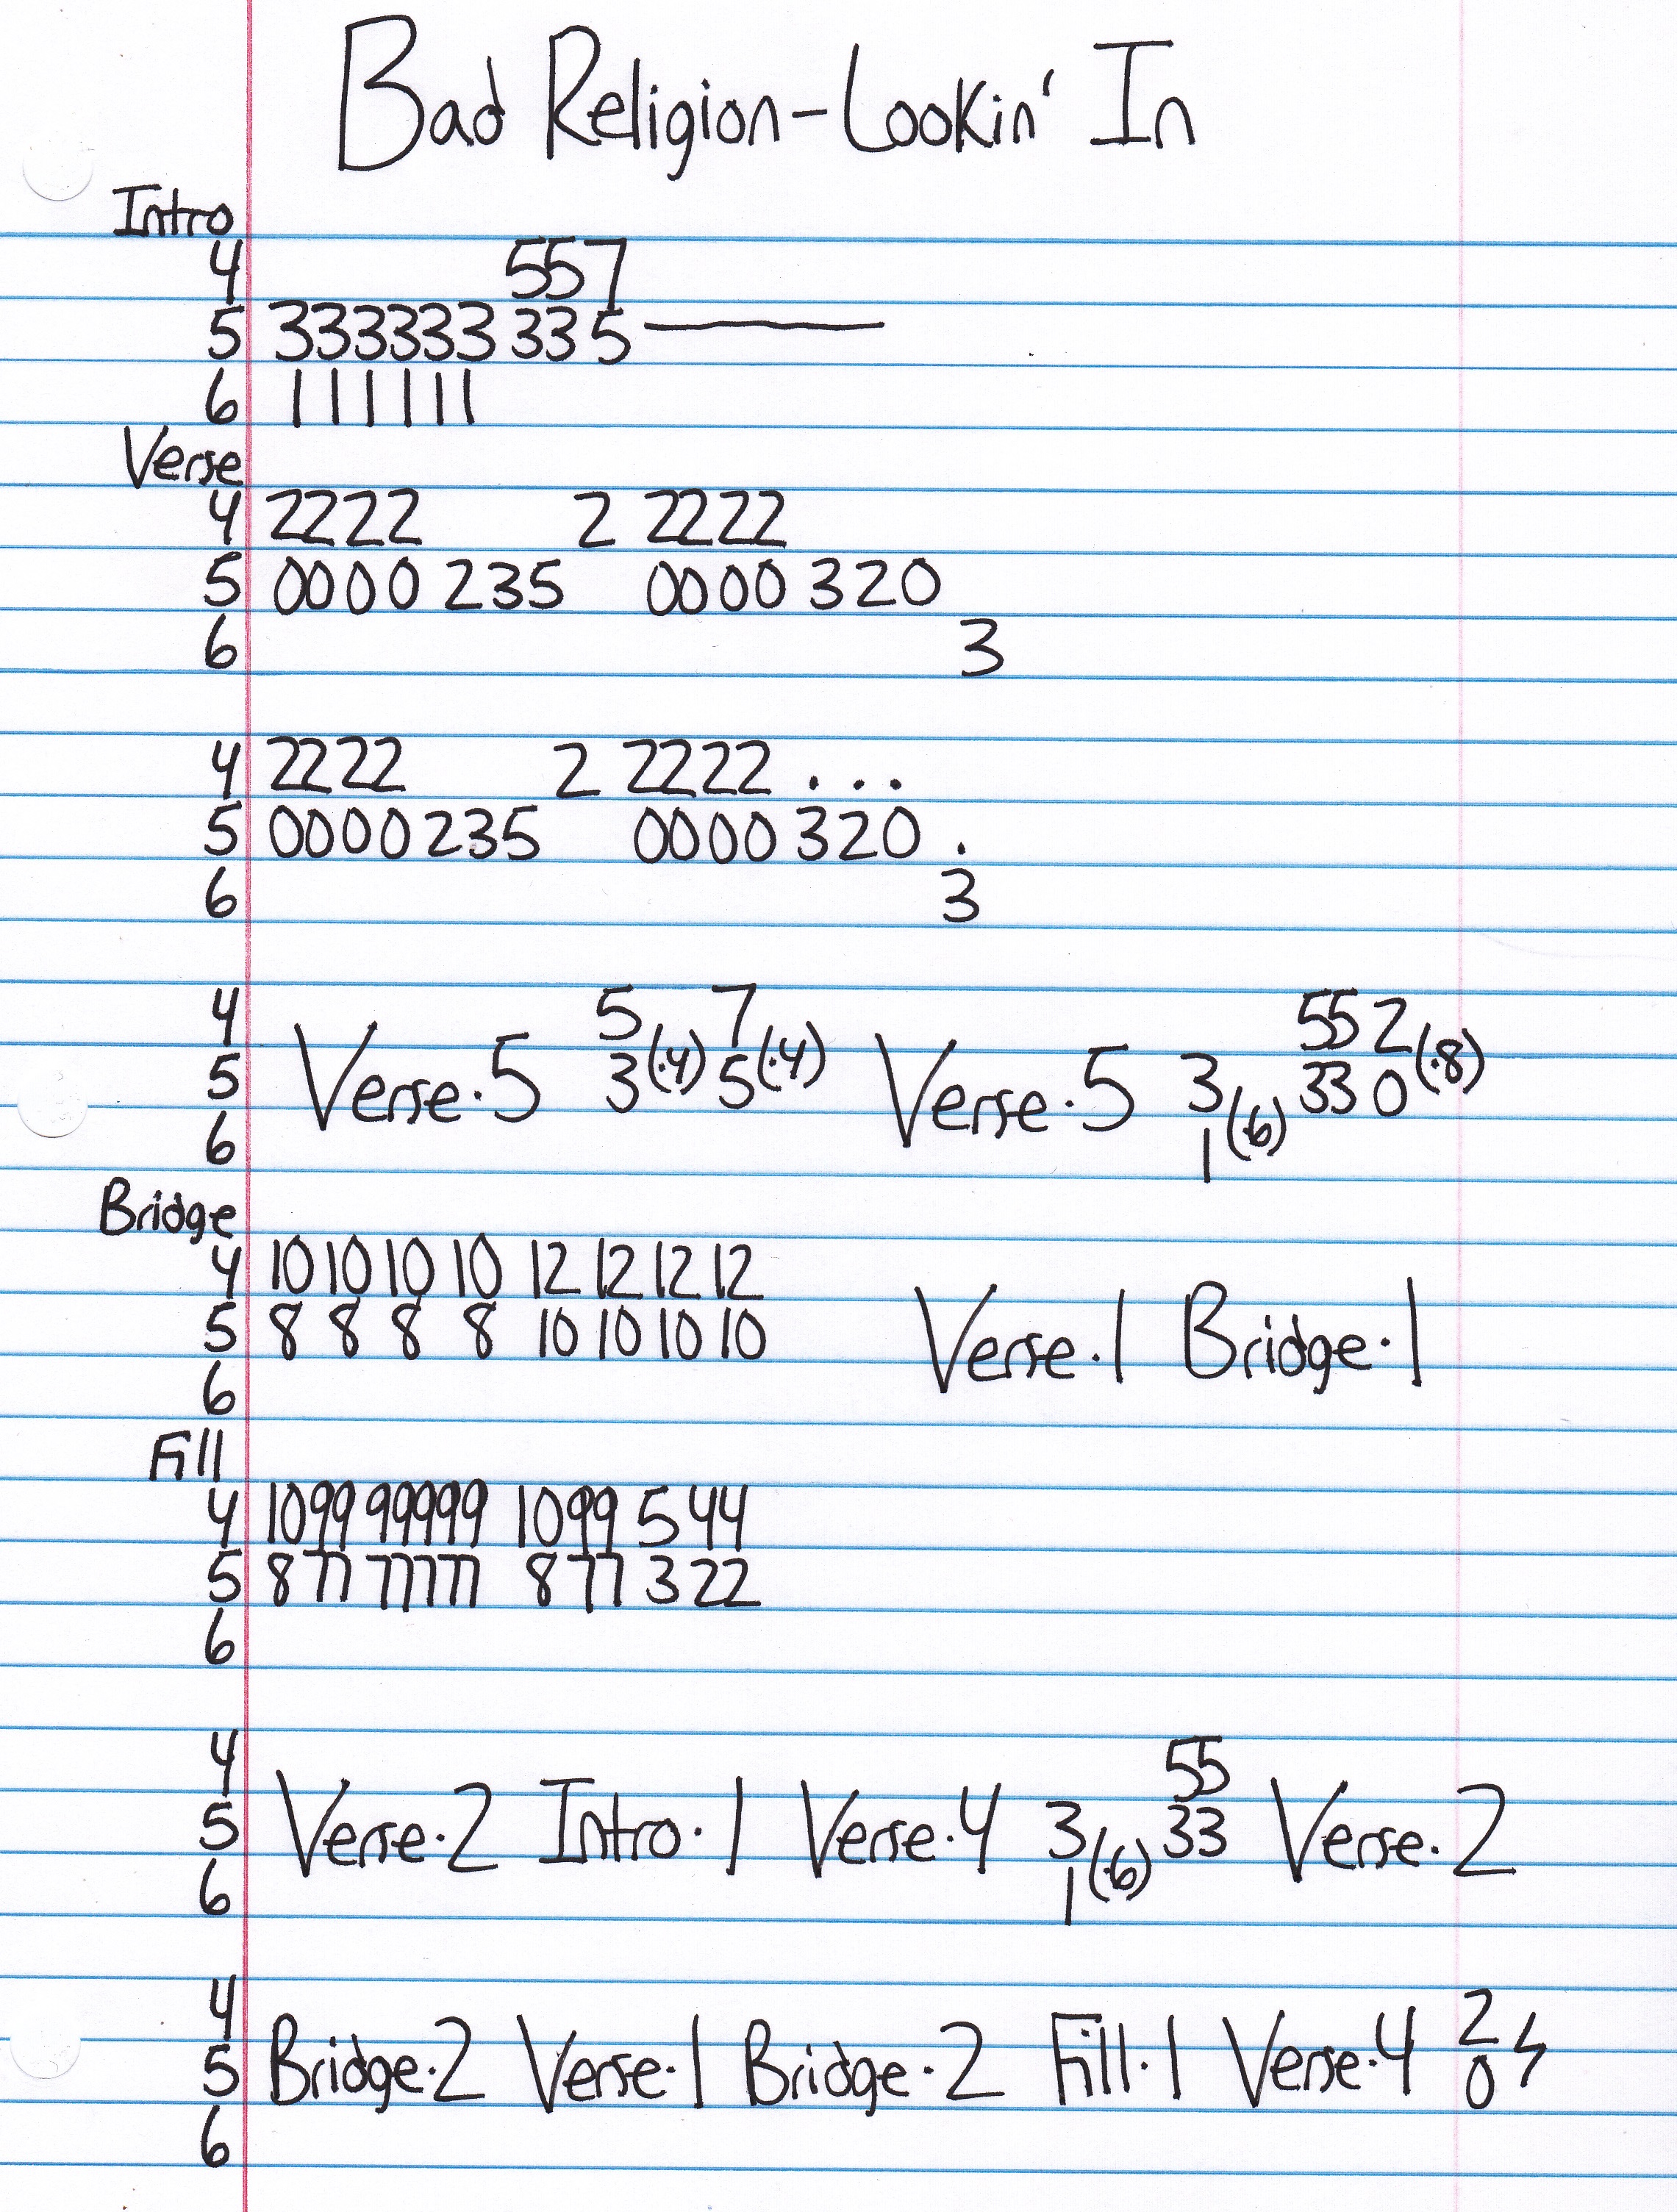 Bad Religion-Lookin' In
Intro
4 557
5 333333 33 5
6 111111
Verse
4 2222 2 2222
5 0000 235 0000 320
6 3
4 2222 2 2222 . . .
5 0000 235 0000 320 .
6 3
4 5 7 55 2
5 Verse·5 3(·4) 5(·4) Verse·5 3 33 0(·8)
6 1(·6)
Bridge
4 10 10 10 10 12 12 12 12
5 8 8 8 8 10 10 10 10 Verse·1 Bridge·1
6
Fill
4 1099 99999 1099 544
5 877 77777 877 322
6
4 55
5 Verse·2 Intro·1 Verse·4 3 33 Verse·2
6 1(·6)
4 2
5 Bridge·2 Verse·1 Bridge·2 Fill·1 Verse·4 0
6